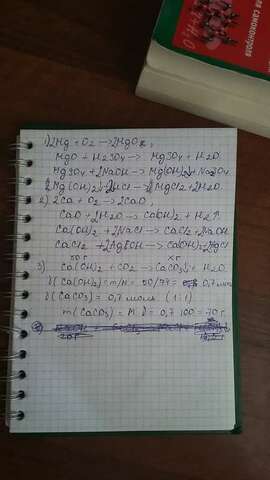 для самоконтроля
1) 2Mg + O2 → 2MgO
MgO + H2SO4 → MgSO4 + H2O
MgSO4 + 2NaOH → Mg(OH)2↓ + Na2SO4
Mg(OH)2↓ + 2HCl → MgCl2 + 2H2O
2) 2Ca + O2 → 2CaO
CaO + 2H2O → Ca(OH)2 + H2↑
Ca(OH)2 + 2NaCl → CaCl2 + 2NaOH
CaCl2 + Mg(OH → Ca(OH)2 + MgCl
50г xг
3) Ca(OH)2 + CO2 → CaCO3↓ + H2O
ν(Ca(OH)2 = m/M = 50/74 = 0,7 моль
ν(CaCO3) = 0,7 моль (1:1)
m(CaCO3) = M·ν = 0,7·100 = 70 г.